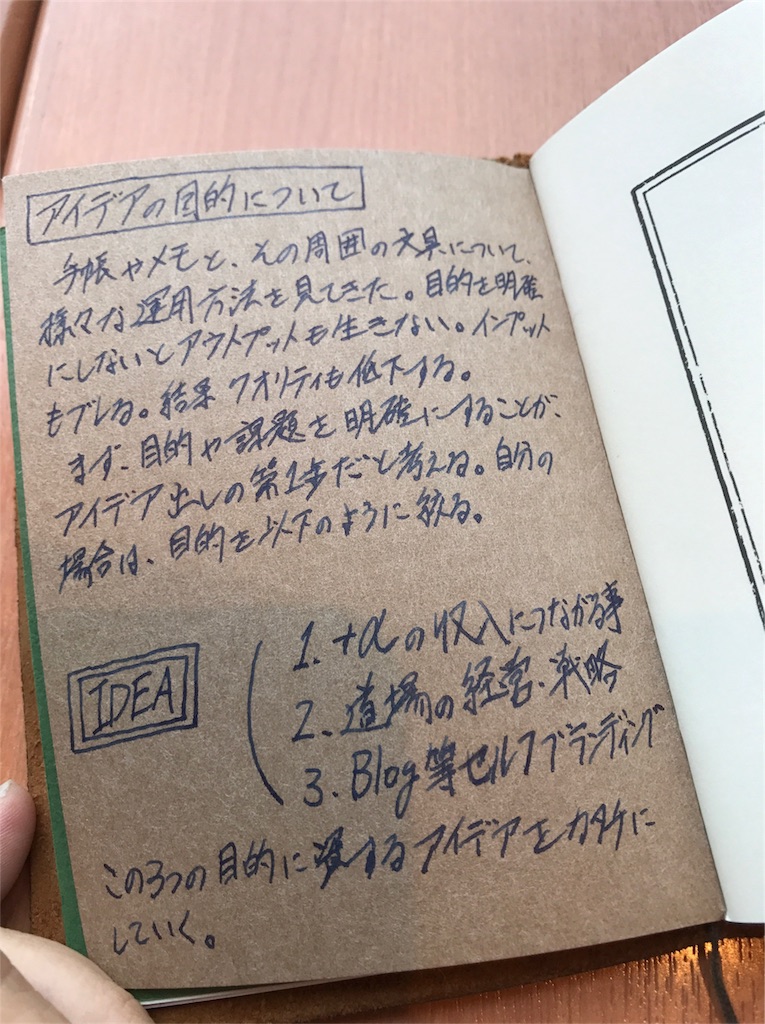 アイデアの目的について
手帳やメモと、その周囲の文具について、
様々な運用方法を見てきた。目的を明確
にしないとアウトプットも生きない。インプット
もブレる。結果 クオリティも低下する。
まず、目的や課題を明確にすることが、
アイデア出しの第1歩だと考える。自分の
場合は、目的を以下のように絞る。
1. +αの収入につながる事
IDEA
2. 道場の経営、戦略
3. Blog等セルフブランディング
この3つの目的に するアイデアをカタチに
していく。